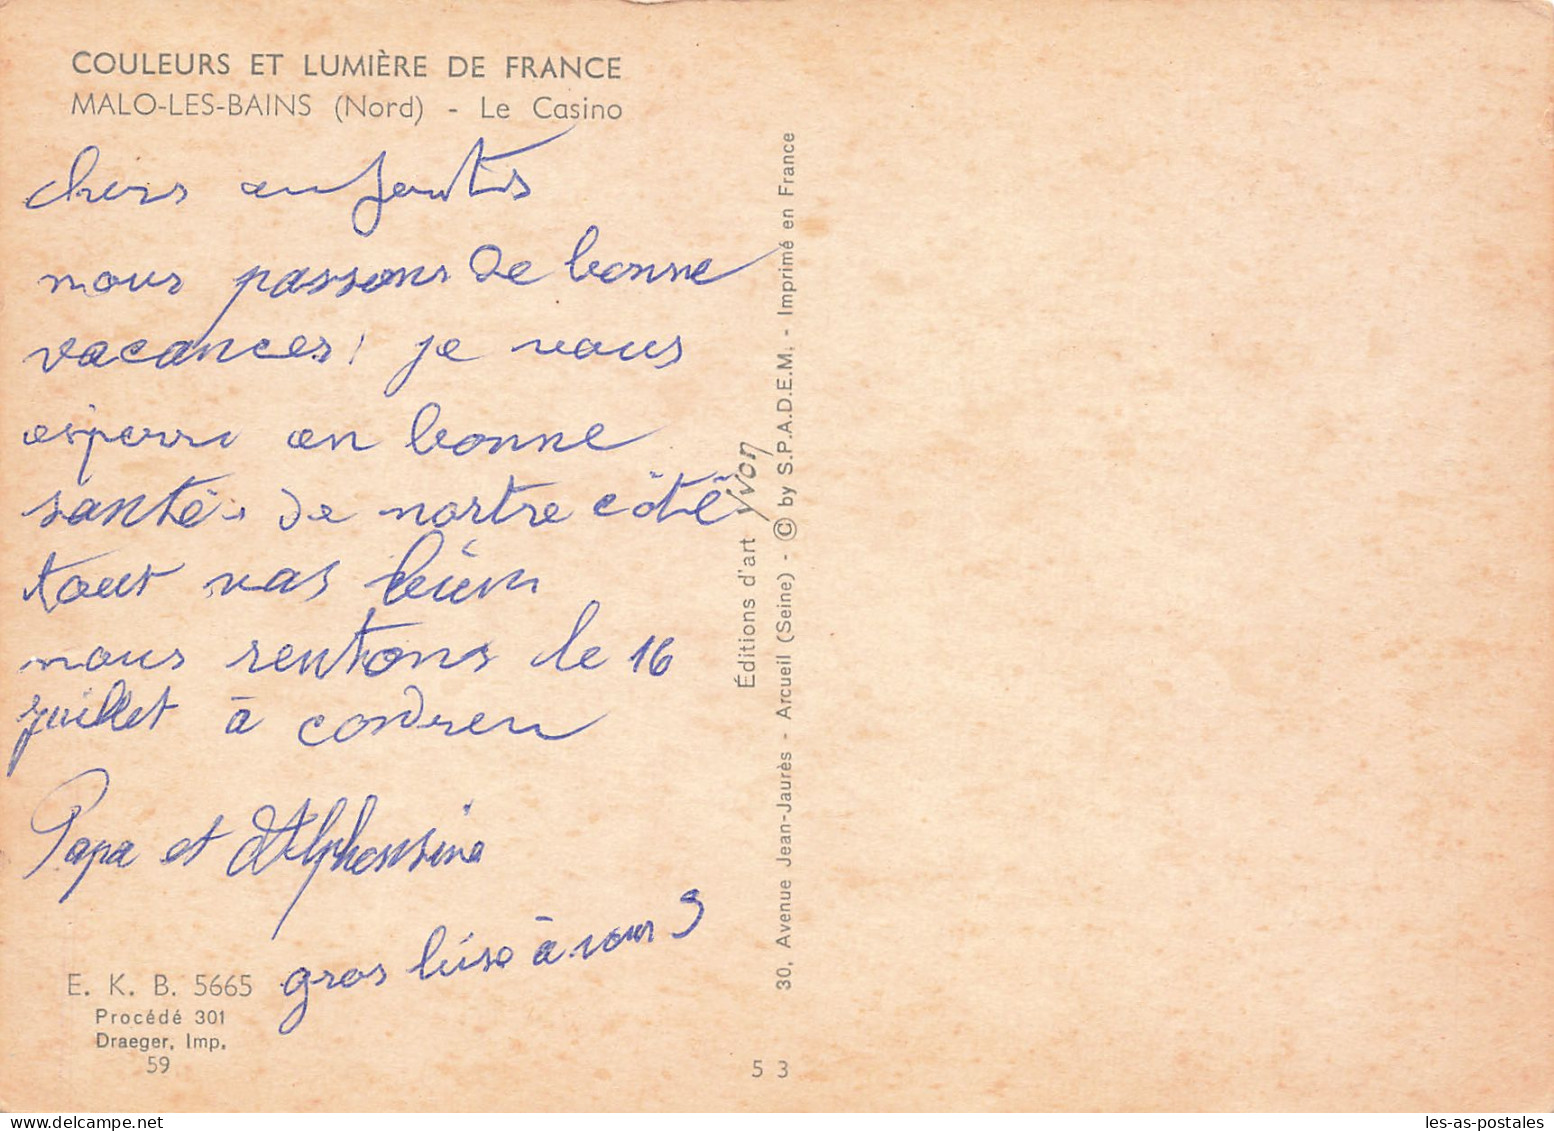 COULEURS ET LUMIÈRE DE FRANCE
MALO-LES-BAINS (Nord) - Le Casino
chers enfants
nous passons de bonne
vacances! je vous
esperre en bonne
santé. de nortre côté
tout vas bien
nous rentrons le 16
juillet à condren
Papa et Alphonsine
gros bise à vous 3
E. K. B. 5665
Procédé 301
Draeger, Imp.
59
Éditions d'art yvon
30, Avenue Jean-Jaurès - Arcueil (Seine) - © by S.P.A.D.E.M. - Imprimé en France
5 3
delcampe.net
les-as-postales